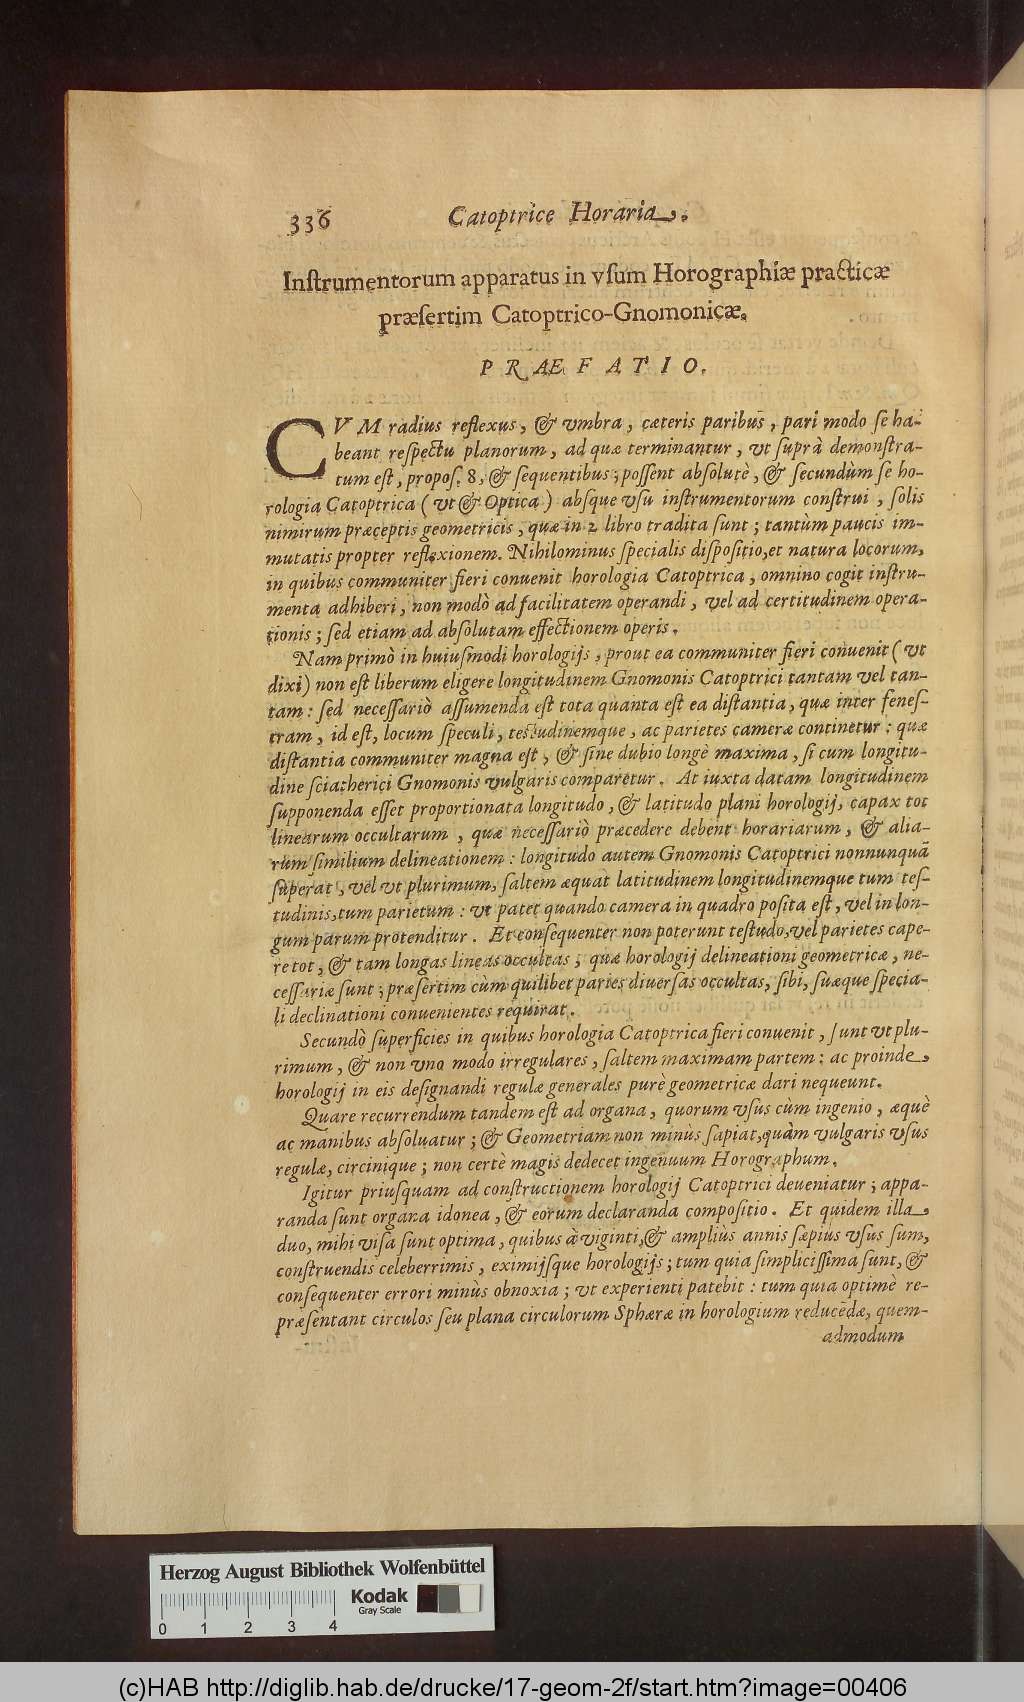 336 Catoptrice Horaria.
Inſtrumentorum apparatus in vſum Horographiæ practicæ
præſertim Catoptrico-Gnomonicæ.
PRÆFATIO.
CVM radius reflexus, & vmbra, cæteris paribus, pari modo ſe ha-
beant reſpectu planorum, ad quæ terminantur, vt ſuprà demonſtra-
tum eſt, propoſ. 8, & ſequentibus; poſſent abſolutè, & ſecundùm ſe ho-
rologia Catoptrica (vt & Optica) abſque vſu inſtrumentorum conſtrui, ſolis
nimirum præceptis geometricis, quæ in 2 libro tradita ſunt; tantùm paucis im-
mutatis propter reflexionem. Nihilominus ſpecialis diſpoſitio, et natura locorum,
in quibus communiter fieri conuenit horologia Catoptrica, omnino cogit inſtru-
menta adhiberi, non modò ad facilitatem operandi, vel ad certitudinem opera-
tionis; ſed etiam ad abſolutam effectionem operis.
Nam primò in huiuſmodi horologijs, prout ea communiter fieri conuenit (vt
dixi) non eſt liberum eligere longitudinem Gnomonis Catoptrici tantam vel tan-
tam: ſed neceſſariò aſſumenda eſt tota quanta eſt ea diſtantia, quæ inter feneſ-
tram, id eſt, locum ſpeculi, teſtudinemque, ac parietes cameræ continetur: quæ
diſtantia communiter magna eſt, & ſine dubio longè maxima, ſi cum longitu-
dine ſciatherici Gnomonis vulgaris comparetur. At iuxta datam longitudinem
ſupponenda eſſet proportionata longitudo, & latitudo plani horologij, capax tot
linearum occultarum, quæ neceſſariò præcedere debent horariarum, & alia-
rum ſimilium delineationem: longitudo autem Gnomonis Catoptrici nonnunquā
ſuperat, vel vt plurimum, ſaltem æquat latitudinem longitudinemque tum teſ-
tudinis, tum parietum: vt patet quando camera in quadro poſita eſt, vel in lon-
gum parum protenditur. Et conſequenter non poterunt teſtudo, vel parietes cape-
re tot, & tam longas lineas occultas, quæ horologij delineationi geometricæ, ne-
ceſſariæ ſunt; præſertim cùm quilibet paries diuerſas occultas, ſibi, ſuæque ſpecia-
li declinationi conuenientes requirat.
Secundò ſuperficies in quibus horologia Catoptrica fieri conuenit, ſunt vt plu-
rimum, & non vno modo irregulares, ſaltem maximam partem: ac proinde
horologij in eis deſignandi regulæ generales purè geometricæ dari nequeunt.
Quare recurrendum tandem eſt ad organa, quorum vſus cùm ingenio, æquè
ac manibus abſoluatur; & Geometriam non minùs ſapiat, quàm vulgaris vſus
regulæ, circinique; non certè magis dedecet ingenuum Horographum.
Igitur priuſquam ad conſtructionem horologij Catoptrici deueniatur; appa-
randa ſunt organa idonea, & eorum declaranda compoſitio. Et quidem illa
duo, mihi viſa ſunt optima, quibus à viginti, & ampliùs annis ſæpiùs vſus ſum,
conſtruendis celeberrimis, eximijſque horologijs; tum quia ſimpliciſſima ſunt, &
conſequenter errori minùs obnoxia; vt experienti patebit: tum quia optimè re-
præſentant circulos ſeu plana circulorum Sphæræ in horologium reducēdæ, quem-
admodum
Herzog August Bibliothek Wolfenbüttel
Kodak
Gray Scale
0 1 2 3 4
(c)HAB http://diglib.hab.de/drucke/17-geom-2f/start.htm?image=00406